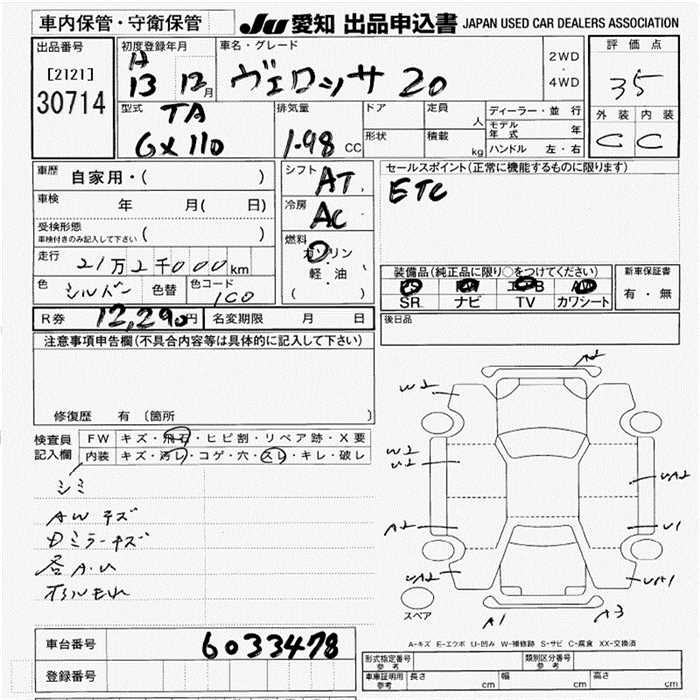 車内保管・守衛保管
JU 愛知 出品申込書 JAPAN USED CAR DEALERS ASSOCIATION
出品番号
[2121]
30714
初度登録年月
H
13 12月
車名・グレード
ヴェロッサ 20
2WD
・
4WD
評価点
35
外装 内装
C C
型式
TA
GX110
排気量
1.98 CC
ドア
定員 人
形状
積載 kg
ディーラー・並行
モデル年式 年
ハンドル 左・右
車歴
自家用・( )
車検
年 月( 日)
受検形態
車検付きのみ記入して下さい ( )
走行
21万2千000km
色
シルバー
色替
色コード
1C0
シフト
AT
冷房
AC
燃料
ガソリン
・
軽・油
( )
セールスポイント(正常に機能するものに限ります)
ETC
装備品(純正品に限り○をつけてください)
PS PW エアB AW
SR ナビ TV カワシート
新車保証書
有・無
R券 12,290円 名変期限 月 日
後日品
注意事項申告欄(不具合内容等は具体的に記入して下さい)
修復歴 有〔箇所 〕
検査員
記入欄
FW キズ・飛石・ヒビ割・リペア跡・X要
内装 キズ・汚レ・コゲ・穴・スレ・キレ・破レ
シミ
AWキズ
Dミラーキズ
各A.U
オイルモれ
A2
W2
W2
U2
UA2
A2
U1
UA2
UA1
A1
A3
スペア
A-キズ E-エクボ U-凹み W-補修跡 S-サビ C-腐食 XX-交換済
車台番号
6033478
登録番号
形式指定番号
参考
類別区分番号
参考
車庫証明用
参考
長さ cm 幅 cm 高さ cm